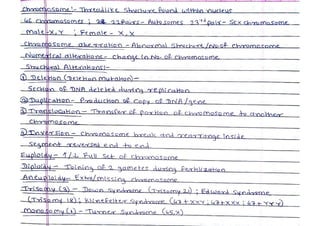 Chromosome:- Threadlike Structure found within nucleus
46 Chromosomes ; 22 Pairs - Autosomes 23rd pair - Sex Chromosome
Male - X, Y ; Female - X, X
Chromosome aberration - Abnormal Structure / no. of chromosome
Numerical alterations - Change in No. of Chromosome
Structural Alterations:-
① Deletion (Deletion Mutation) -
Section of DNA deleted during replication
② Duplication - Production of Copy of DNA/gene
③ Translocation - Transfer of portion of chromosome to another
Chromosome
④ Inversion - Chromosome break and rearrange inside
Segment reversed end to end
Euploidy - Full Set of Chromosome
Diploidy - Joining of 2 gametes during fertilization
Aneuploidy - Extra/missing chromosome
Trisomy (3) - Down Syndrome (Trisomy 21) ; Edward Syndrome
(Trisomy 18) ; Klinefelter Syndrome (47+XXY,
Monosomy (1) - Turner Syndrome (45,X)